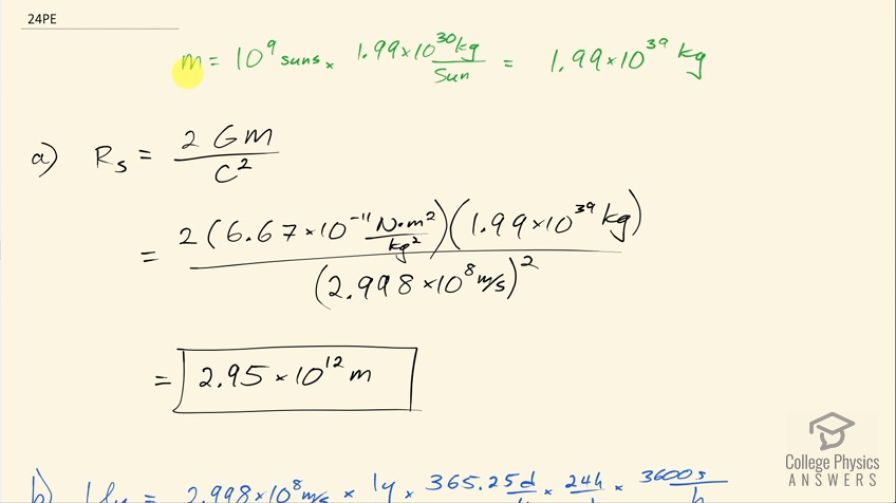 24PE
m = 10⁹ suns × 1.99×10³⁰ kg / Sun = 1.99×10³⁹ kg
a) Rₛ = 2 G m / C²
= 2 (6.67×10⁻¹¹ N·m² / kg²)(1.99×10³⁹ kg) / (2.998×10⁸ m/s)²
= 2.95×10¹² m
b) 2.998×10⁸ m/s × 1y × 365.25d × 24h × 3600s
College Physics
ANSWERS